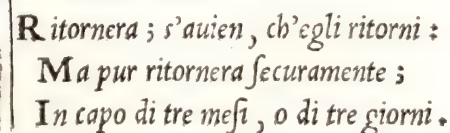 Ritornera ; s'auien , ch'egli ritorni :
Ma pur ritornera ſecuramente ;
In capo di tre meſi , o di tre giorni .